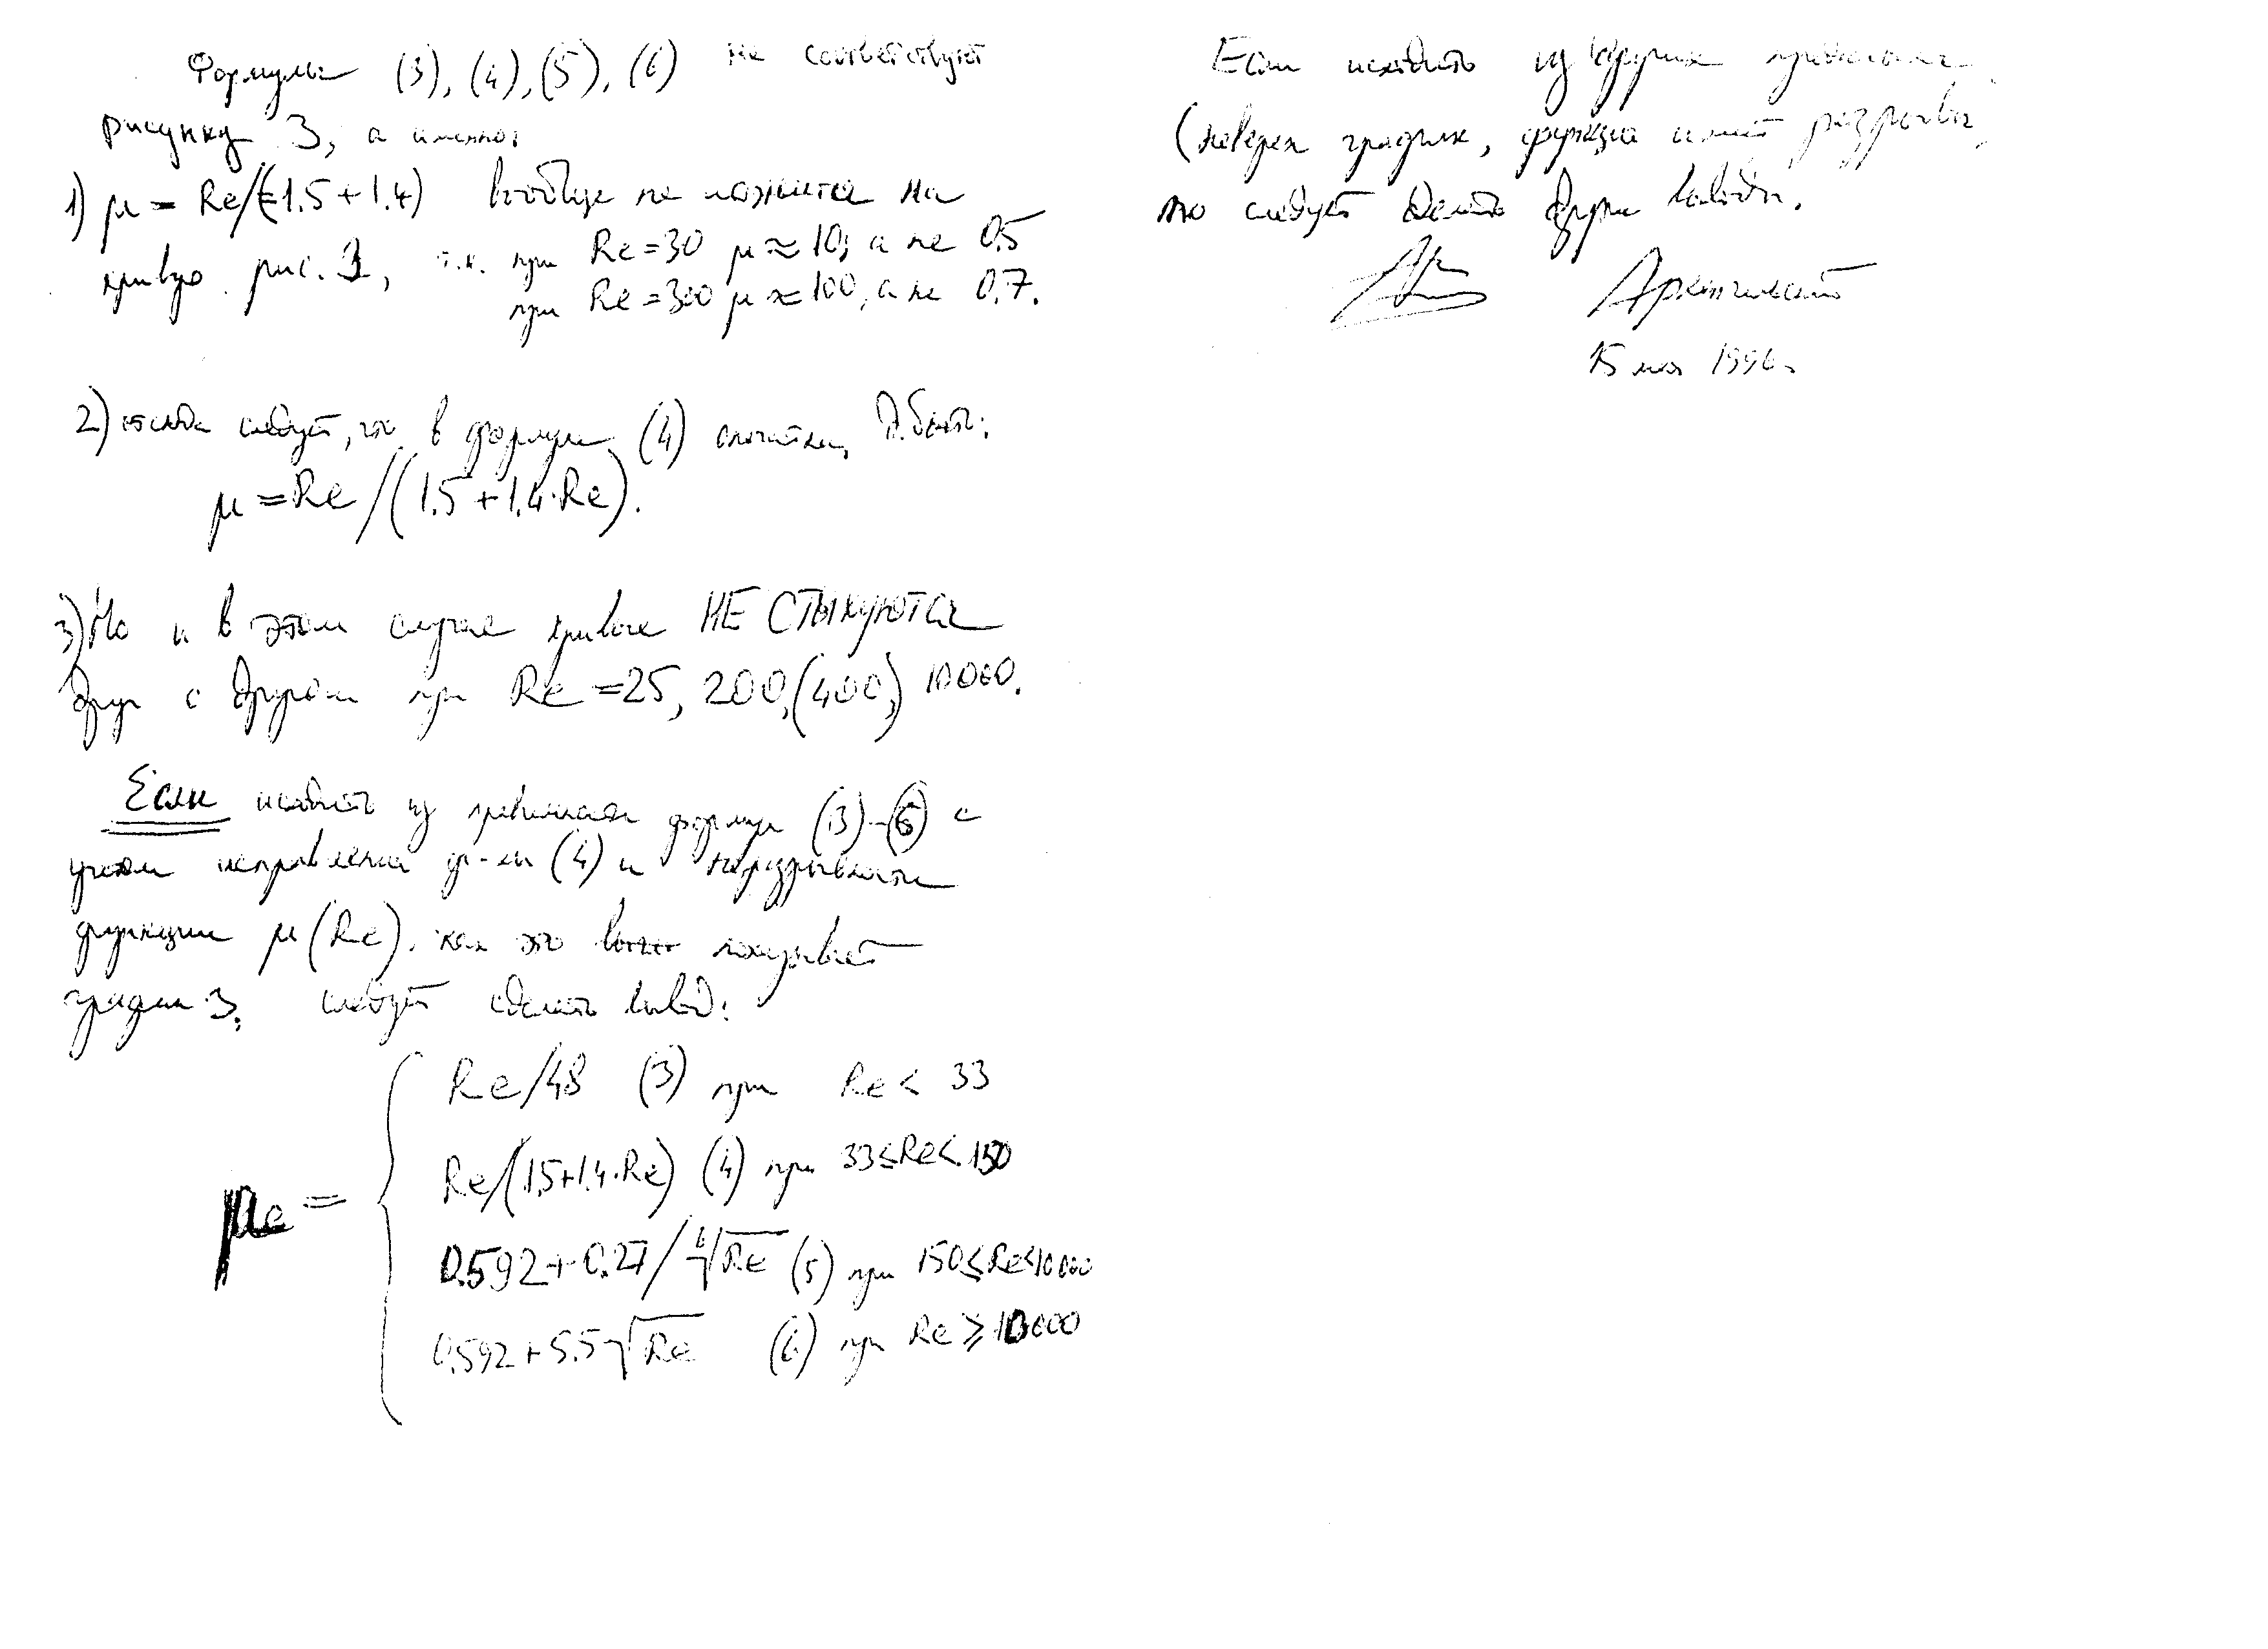 Формулы (3), (4), (5), (6) не соответствуют
рисунку 3, а именно:
1) μ = Re/(-1.5+1.4) вообще не ложится на
кривую рис. 3, т.к. при Re=30 μ≈10, а не 0.5
при Re=300 μ≈100, а не 0.7.
2) отсюда следует, что в формуле (4) опечатка, д.быть:
μ = Re/(1.5+1.4·Re).
3) Но и в этом случае кривые НЕ СТЫКУЮТСЯ
друг с другом при Re=25, 200, (400,) 10000.
Если исходить из правильности формул (3)-(6) с
учетом исправления ф-лы (4) и непрерывности
функции μ(Re), как это показывает
график 3, следует сделать вывод:
μe =
Re/48 (3) при Re < 33
Re/(15+1.4·Re) (4) при 33≤Re<150
0.592+0.27/⁶√Re (5) при 150≤Re<10000
0.592+5.5√Re (6) при Re ≥ 10000
Если исходить из других
(неверен график, функция имеет разрывы),
то следует делать другие выводы.
15 мая 1996г.